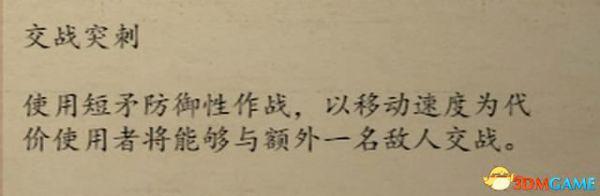 交战突刺
使用短矛防御性作战，以移动速度为代
价使用者将能够与额外一名敌人交战。
3DMGAME